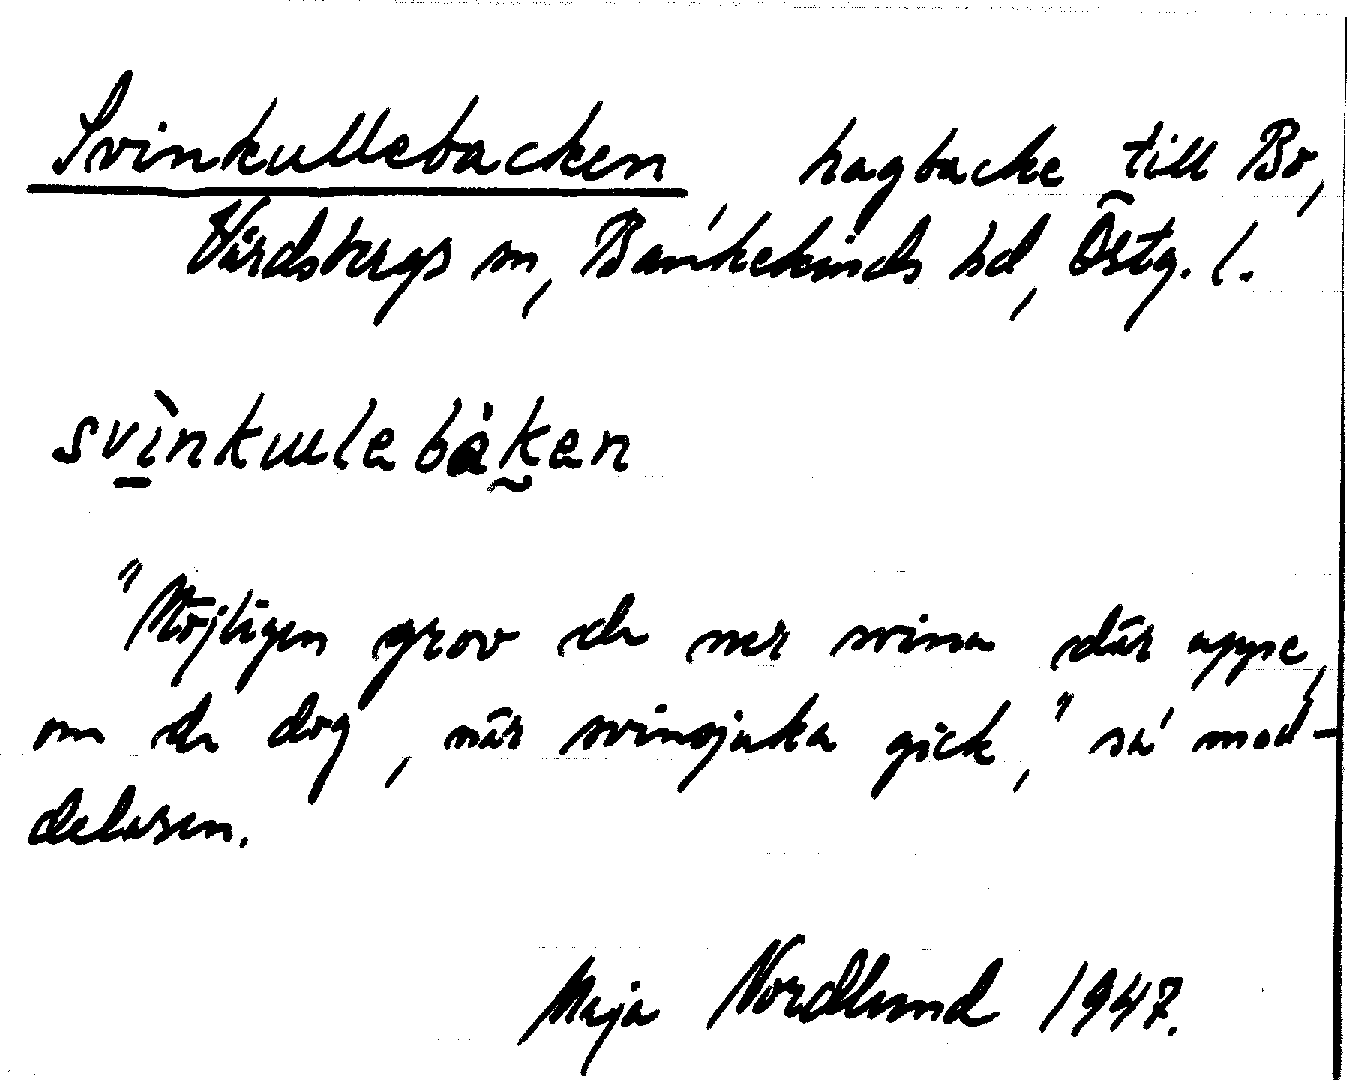 Svinkullebacken, hagbacke till Bo,
Vårdsbergs sn, Bankekinds hd, Östg. l.
svìnkullebàken
"Möjligen grov de ner svina där uppe,
om de dog, när svinsjuka gick," sa' med-
delaren.
Maja Nordlund 1947.